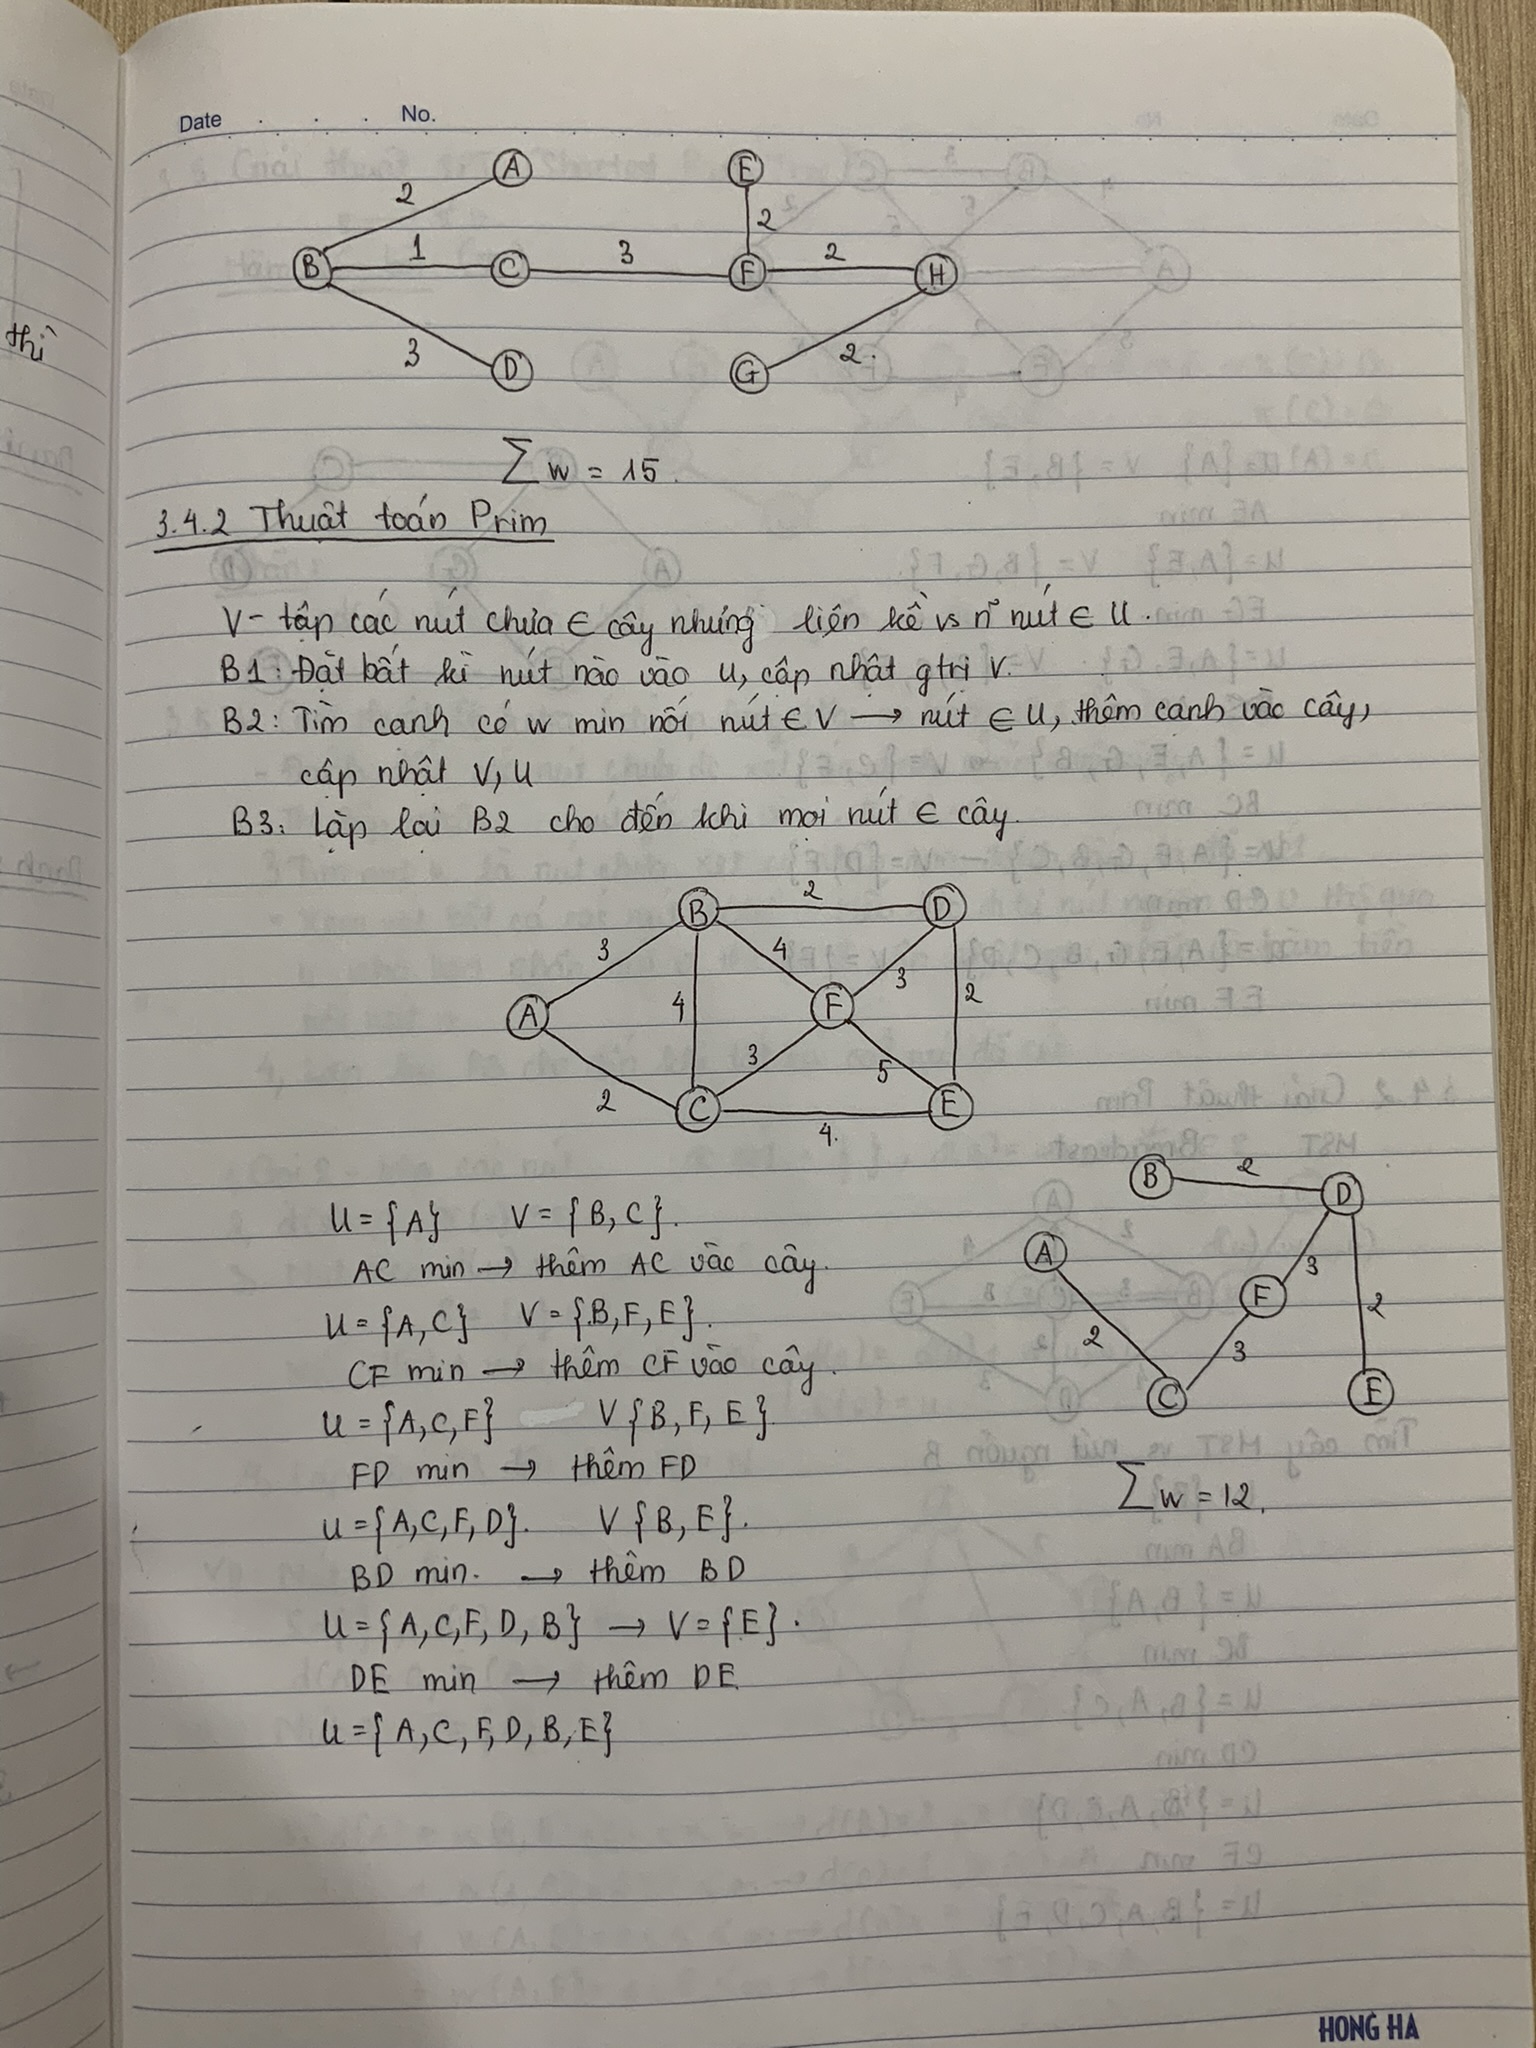 Date No.
A E
2 2
B 1 C 3 F 2 H
3 2.
D G
thì
∑ w = 15.
3.4.2 Thuật toán Prim
V - tập các nút chưa ∈ cây nhưng liên kề vs nº nút ∈ U.
B1: Đặt bất kì nút nào vào U, cập nhật gtri V.
B2: Tìm cạnh có w min nối nút ∈ V → nút ∈ U, thêm cạnh vào cây,
cập nhật V, U
B3: Lặp lại B2 cho đến khi mọi nút ∈ cây.
B 2 D
3 4 3
A 4 F 2
2 3 5
C 4. E
B 2 D
A 3
F 2
2 3
C E
∑ w = 12.
U = {A} V = {B, C}.
AC min → thêm AC vào cây.
U = {A, C} V = {B, F, E}.
CF min → thêm CF vào cây.
U = {A, C, F} V {B, F, E}
FD min → thêm FD
U = {A, C, F, D}. V {B, E}.
BD min. → thêm BD
U = {A, C, F, D, B} → V = {E}.
DE min → thêm DE
U = {A, C, F, D, B, E}
HONG HA